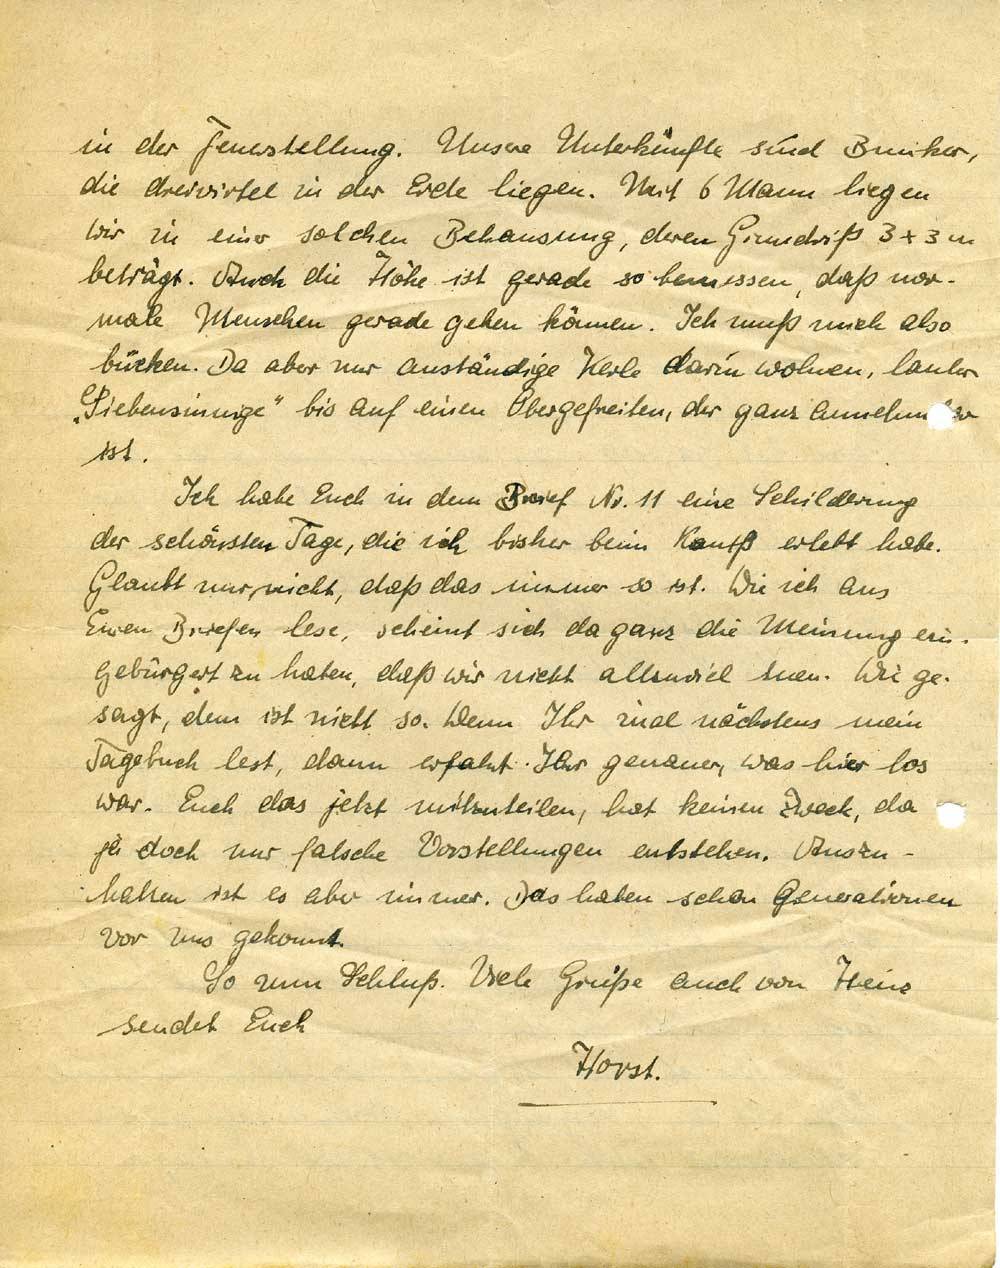 in der Feuerstellung. Unsere Unterkünfte sind Bunker,
die dreivirtel in der Erde liegen. Mit 6 Mann liegen
wir in einer solchen Behausung, deren Grundriß 3 x 3 m
beträgt. Auch die Höhe ist gerade so bemessen, daß nor-
male Menschen gerade gehen können. Ich muß mich also
bücken. Da aber nur anständige Kerle darin wohnen, lauter
„Siebensinnige" bis auf einen Obergefreiten, der ganz
ist.
Ich habe Euch in dem Brief Nr. 11 eine Schilderung
der schönsten Tage, die ich bisher beim erlebt habe.
Glaubt nur nicht, daß das immer so ist. Wie ich aus
Euren Briefen lese, scheint sich da ganz die Meinung ein-
gebürgert zu haben, daß wir nicht allzuviel tuen. Wie ge-
sagt, dem ist nicht so. Wenn Ihr mal nächstens mein
Tagebuch lest, dann erfahrt Ihr genauer, was hier los
war. Euch das jetzt mitzuteilen, hat keinen Zweck, da
ja doch nur falsche Vorstellungen entstehen. Auszu-
halten ist es aber immer. Das haben schon Generationen
vor uns gekonnt.
So zum Schluß. Viele Grüße auch von Heinz
sendet Euch
Horst.